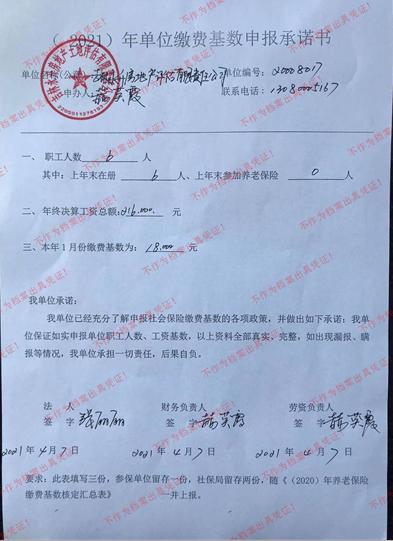 （2021）年单位缴费基数申报承诺书
单位名称（公章） 房地产 评估有限责任公司 单位编号：02008017
申办人：英霞 联系电话：13080005167
一、 职工人数 6 人
其中：上年末在册 6 人、上年末参加养老保险 0 人
二、 年终决算工资总额：216.000. 元
三、本年1月份缴费基数为：18.000 元
我单位承诺：
我单位已经充分了解申报社会保险缴费基数的各项政策，并做出如下承诺：我单
位保证如实申报单位职工人数、工资基数，以上资料全部真实、完整，如出现漏报、瞒
报等情况，我单位承担一切责任，后果自负。
法 人 财务负责人 劳资负责人
签 字 张丽丽 签 字 英霞 签 字 英霞
2021年4月7日 2021年4月7日 2021年4月7日
要求：此表填写三份，参保单位留存一份，社保局留存两份，随《（2020）年养老保险
缴费基数核定汇总表》 一并上报。
不作为档案出具凭证！